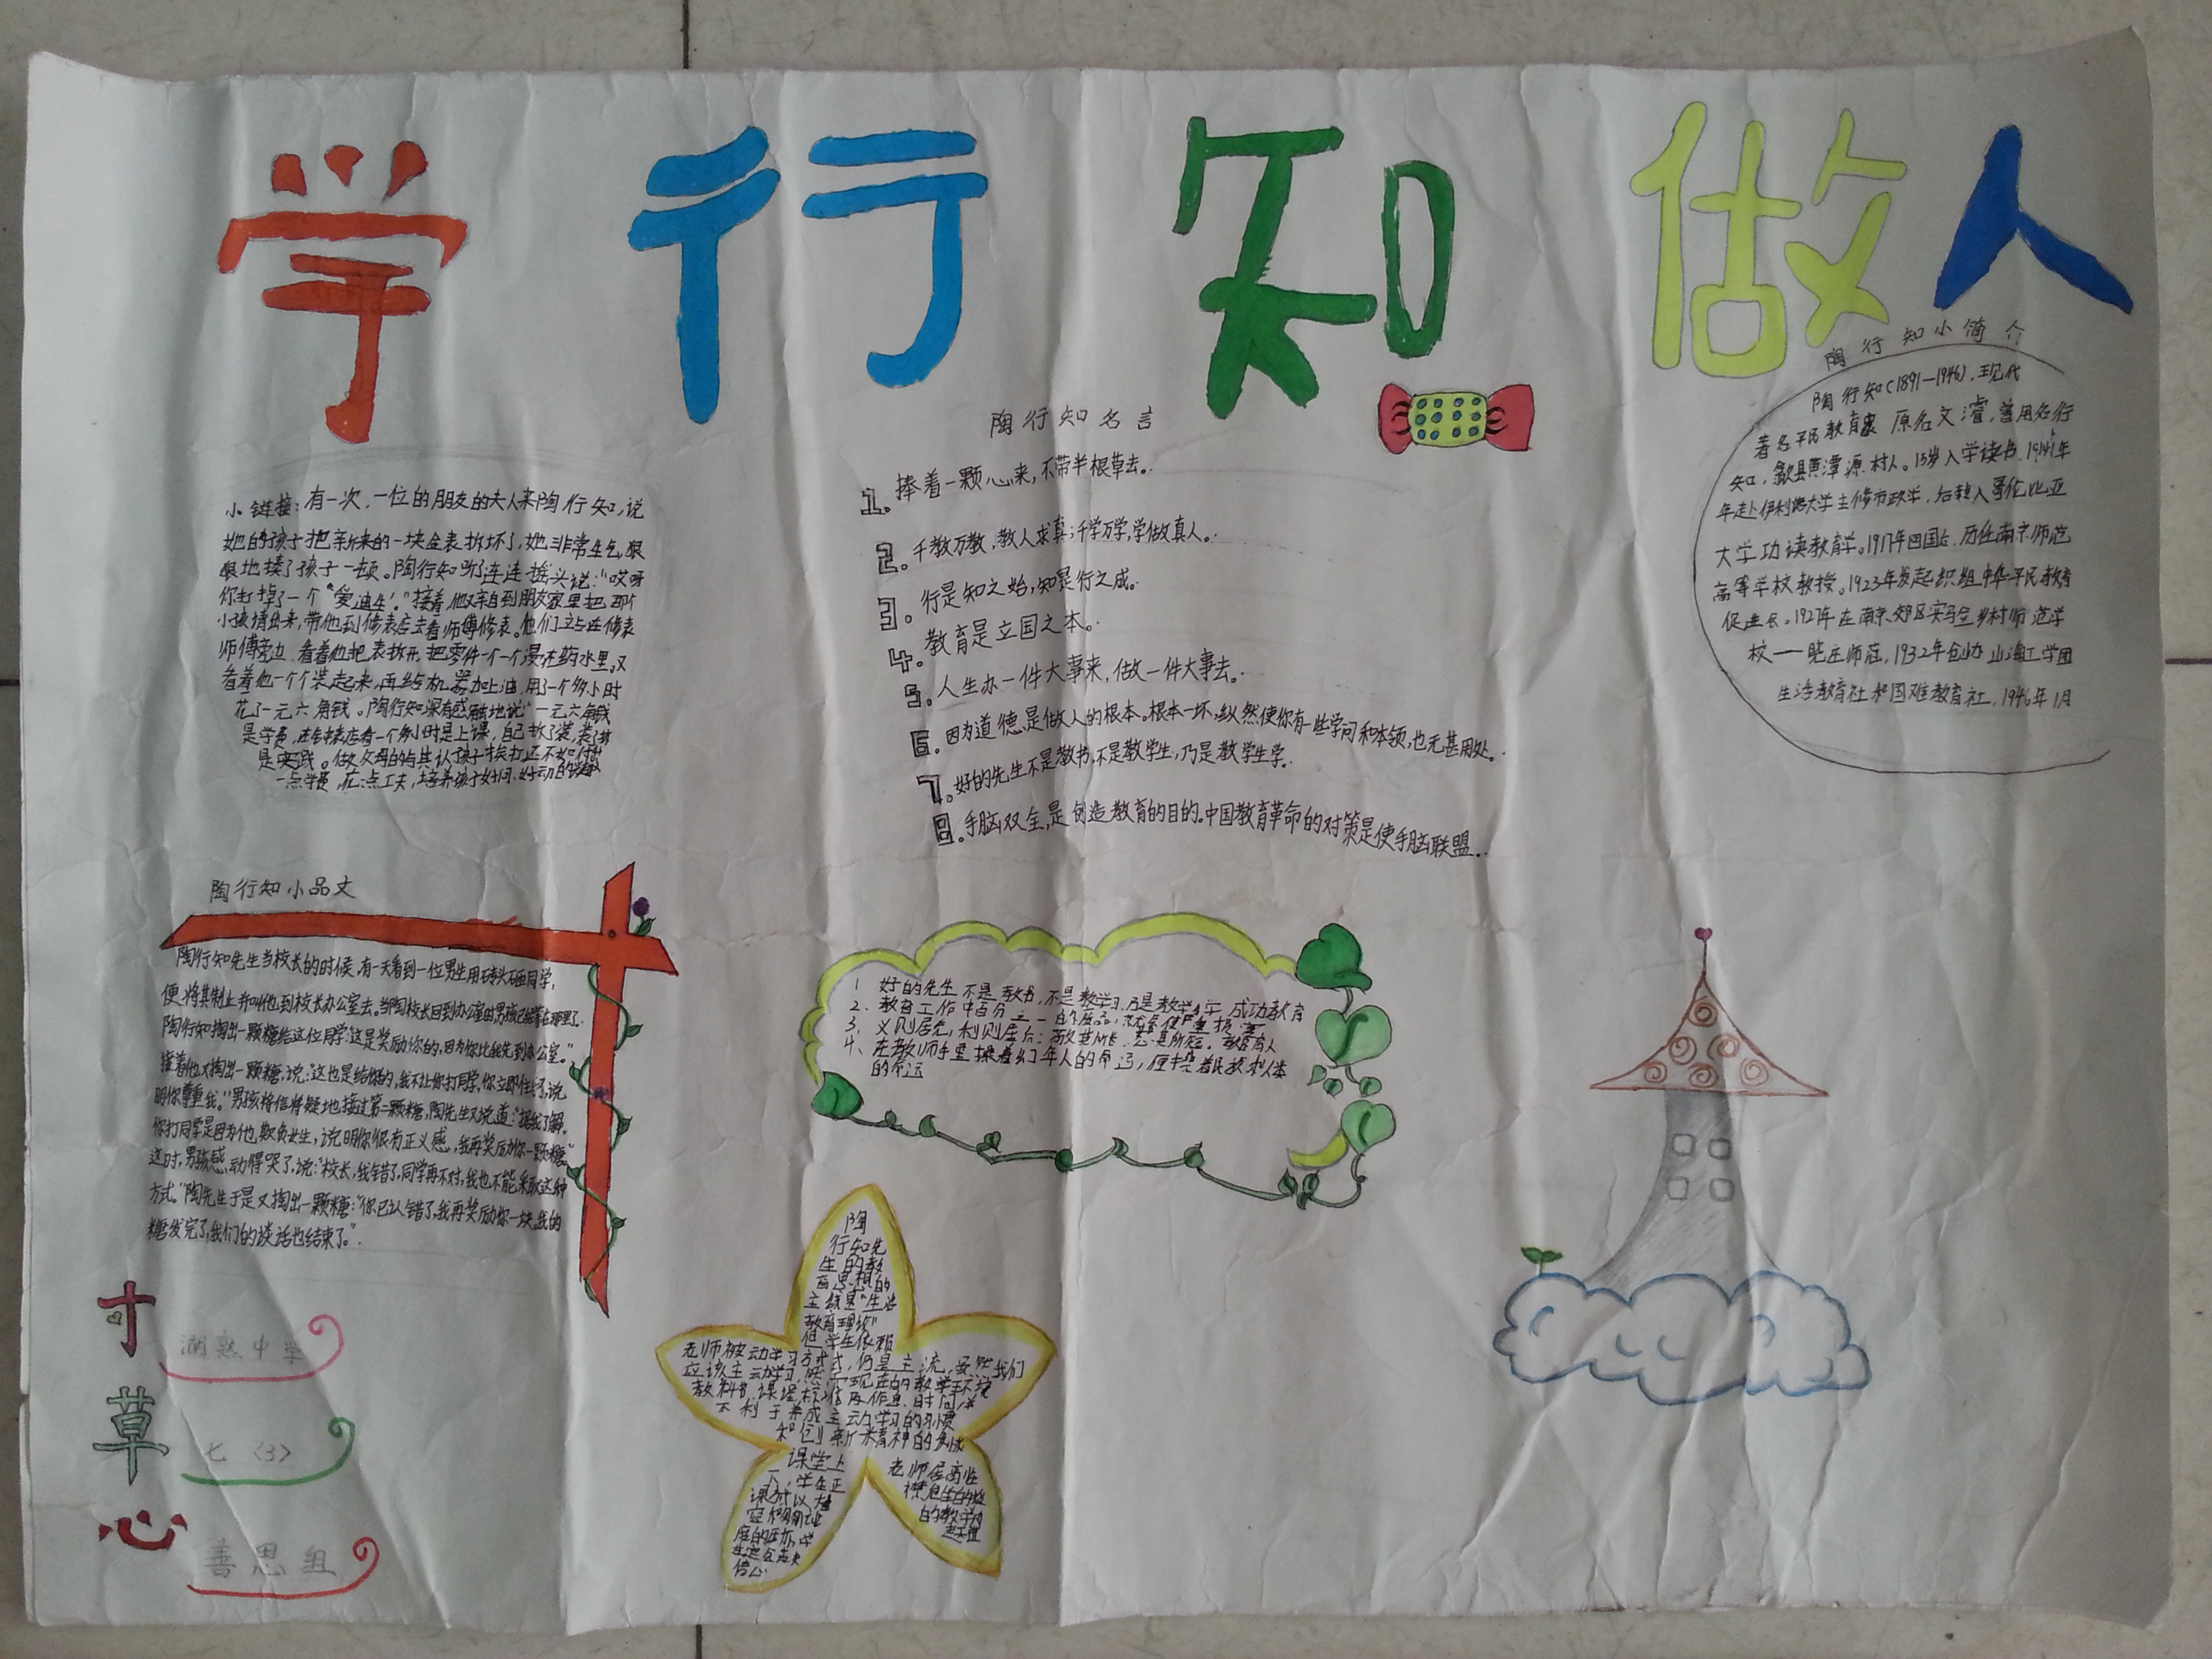 学 行 知 做人
陶行知小简介
陶行知(1891—1946).现代
著名平民教育家 原名文濬,曾用名行
知.歙县黄潭源村人。15岁入学读书.1914年
年赴伊利诺大学主修市政学.后转入哥伦比亚
大学功读教育学。1917年回国后.历任南京师范
高等学校教授。1923年发起织组中华平民教育
促进会.1927年在南京郊区实马会乡村师范学
校——晓庄师范,1932年创办山海工学团
生活教育社和国难教育社.1946年1月
陶行知名言
1.捧着一颗心来,不带半根草去。
2.千教万教,教人求真;千学万学,学做真人。
3.行是知之始,知是行之成。
4.教育是立国之本。
5.人生办一件大事来,做一件大事去。
6.因为道德是做人的根本。根本一坏,纵然使你有一些学问和本领,也无甚用处。
7.好的先生不是教书,不是教学生,乃是教学生学.
8.手脑双全,是创造教育的目的.中国教育革命的对策是使手脑联盟.
小链接:有一次,一位的朋友的夫人来陶行知,说
她的孩子把新来的一块金表拆坏了,她非常生气,狠
狠地揍了孩子一顿。陶行知听了连连摇头说:“哎呀
你打掉了一个“爱迪生”."接着,他亲自到朋友家里把那
小孩请出来,带他到修表店去看师傅修表。他们站在修表
师傅旁边.看着他把表拆开,把零件一个一个浸在药水里.又
看着他一个个装起来,再给机器加上油,用了一个多小时
花了一元六角钱。陶行知深有感触地说“一元六角钱
是学费,在钟表店看一个多小时是上课,自己拆了装,装了拆
是实践。做父母的与其认孩子挨打还不如付出
一点学费,花一点工夫,培养孩子好问、好动的兴趣
陶行知小品文
陶行知先生当校长的时候,有一天看到一位男生用砖头砸同学,
便将其制止并叫他到校长办公室去。当陶校长回到办公室时男孩已经等在那里了.
陶行知掏出一颗糖给这位同学:这是奖励你的,因为你比我先到办公室。"
接着他又掏出一颗糖,说:“这也是给你的,我不让你打同学,你立即住手了,说
明你尊重我。"男孩将信将疑地接过第二颗糖,陶先生又说道:“据我了解,
你打同学是因为他欺负女生,说明你很有正义感,我再奖励你一颗糖。"
这时,男孩感动得哭了,说:“校长,我错了,同学再不对,我也不能采取这种
方式。"陶先生于是又掏出一颗糖:“你已认错了,我再奖励你一块.我的
糖发完了,我们的谈话也结束了。"
1 好的先生不是教书,不是教学习,乃是教学生学.成功教育
2、教育工作中百分之一的废品,就会使严重损害
3、义则居先,利则居后:敬其所长
4、在教师手里操着幼年人的命运,便操着民族和人类
的命运
陶
行知先
生的教
育思想的
主线是“生活
教育理论"
但学生依赖
老师被动学习方式,仍是主流,虽然我们
应该主动学习,
不利于养成主动学习的习惯
和创新精神的
课堂上
寸草心
湖熟中学
七〈3〉
善思组